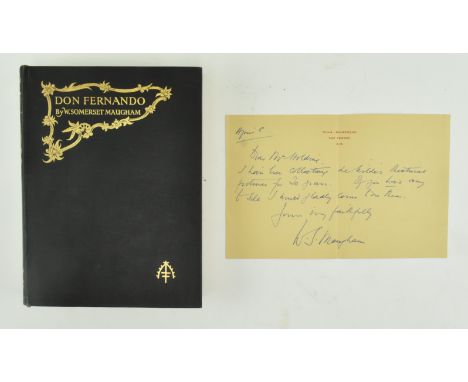 DON FERNANDO
By W. SOMERSET MAUGHAM
April 8
VILLA MAURESQUE
CAP FERRAT
A.M.
Dear Mr
I have been collecting
pictures for 20 years. If you have any
to I will gladly come & see them.
Yours very faithfully
W. S. Maugham